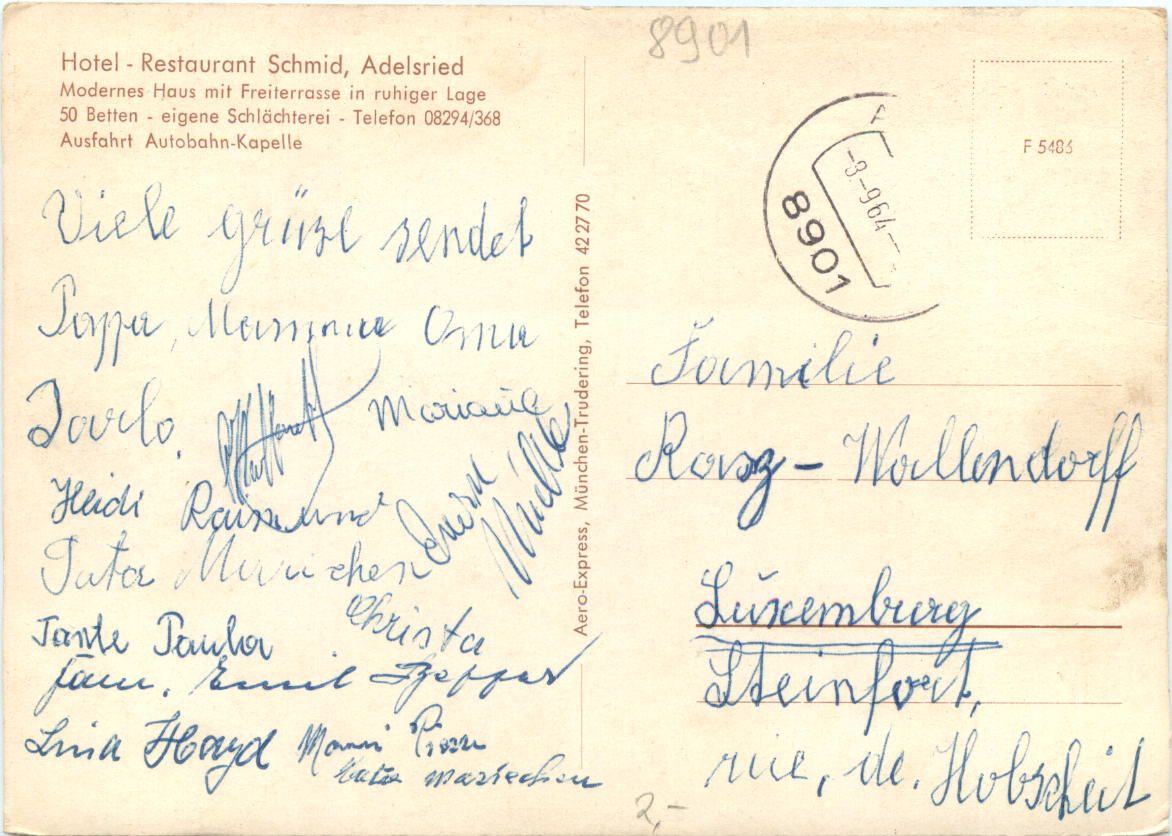 Hotel - Restaurant Schmid, Adelsried
Modernes Haus mit Freiterrasse in ruhiger Lage
50 Betten - eigene Schlächterei - Telefon 08294/368
Ausfahrt Autobahn-Kapelle
Viele grüße sendet
Pappa, Mamma Oma
Mariane
Heidi Raimund
Tata Mariechen
Müller
Christa
Tante Paula
Fam. Emil
Lina Hayd
Mariechen
Aero-Express, München-Trudering, Telefon 42 27 70
8901
-3.-9.64--
8901
F 5486
Familie
Rasz - Wallendorff
Luxemburg
Steinfort,
rue, de, Hobscheit
2,-